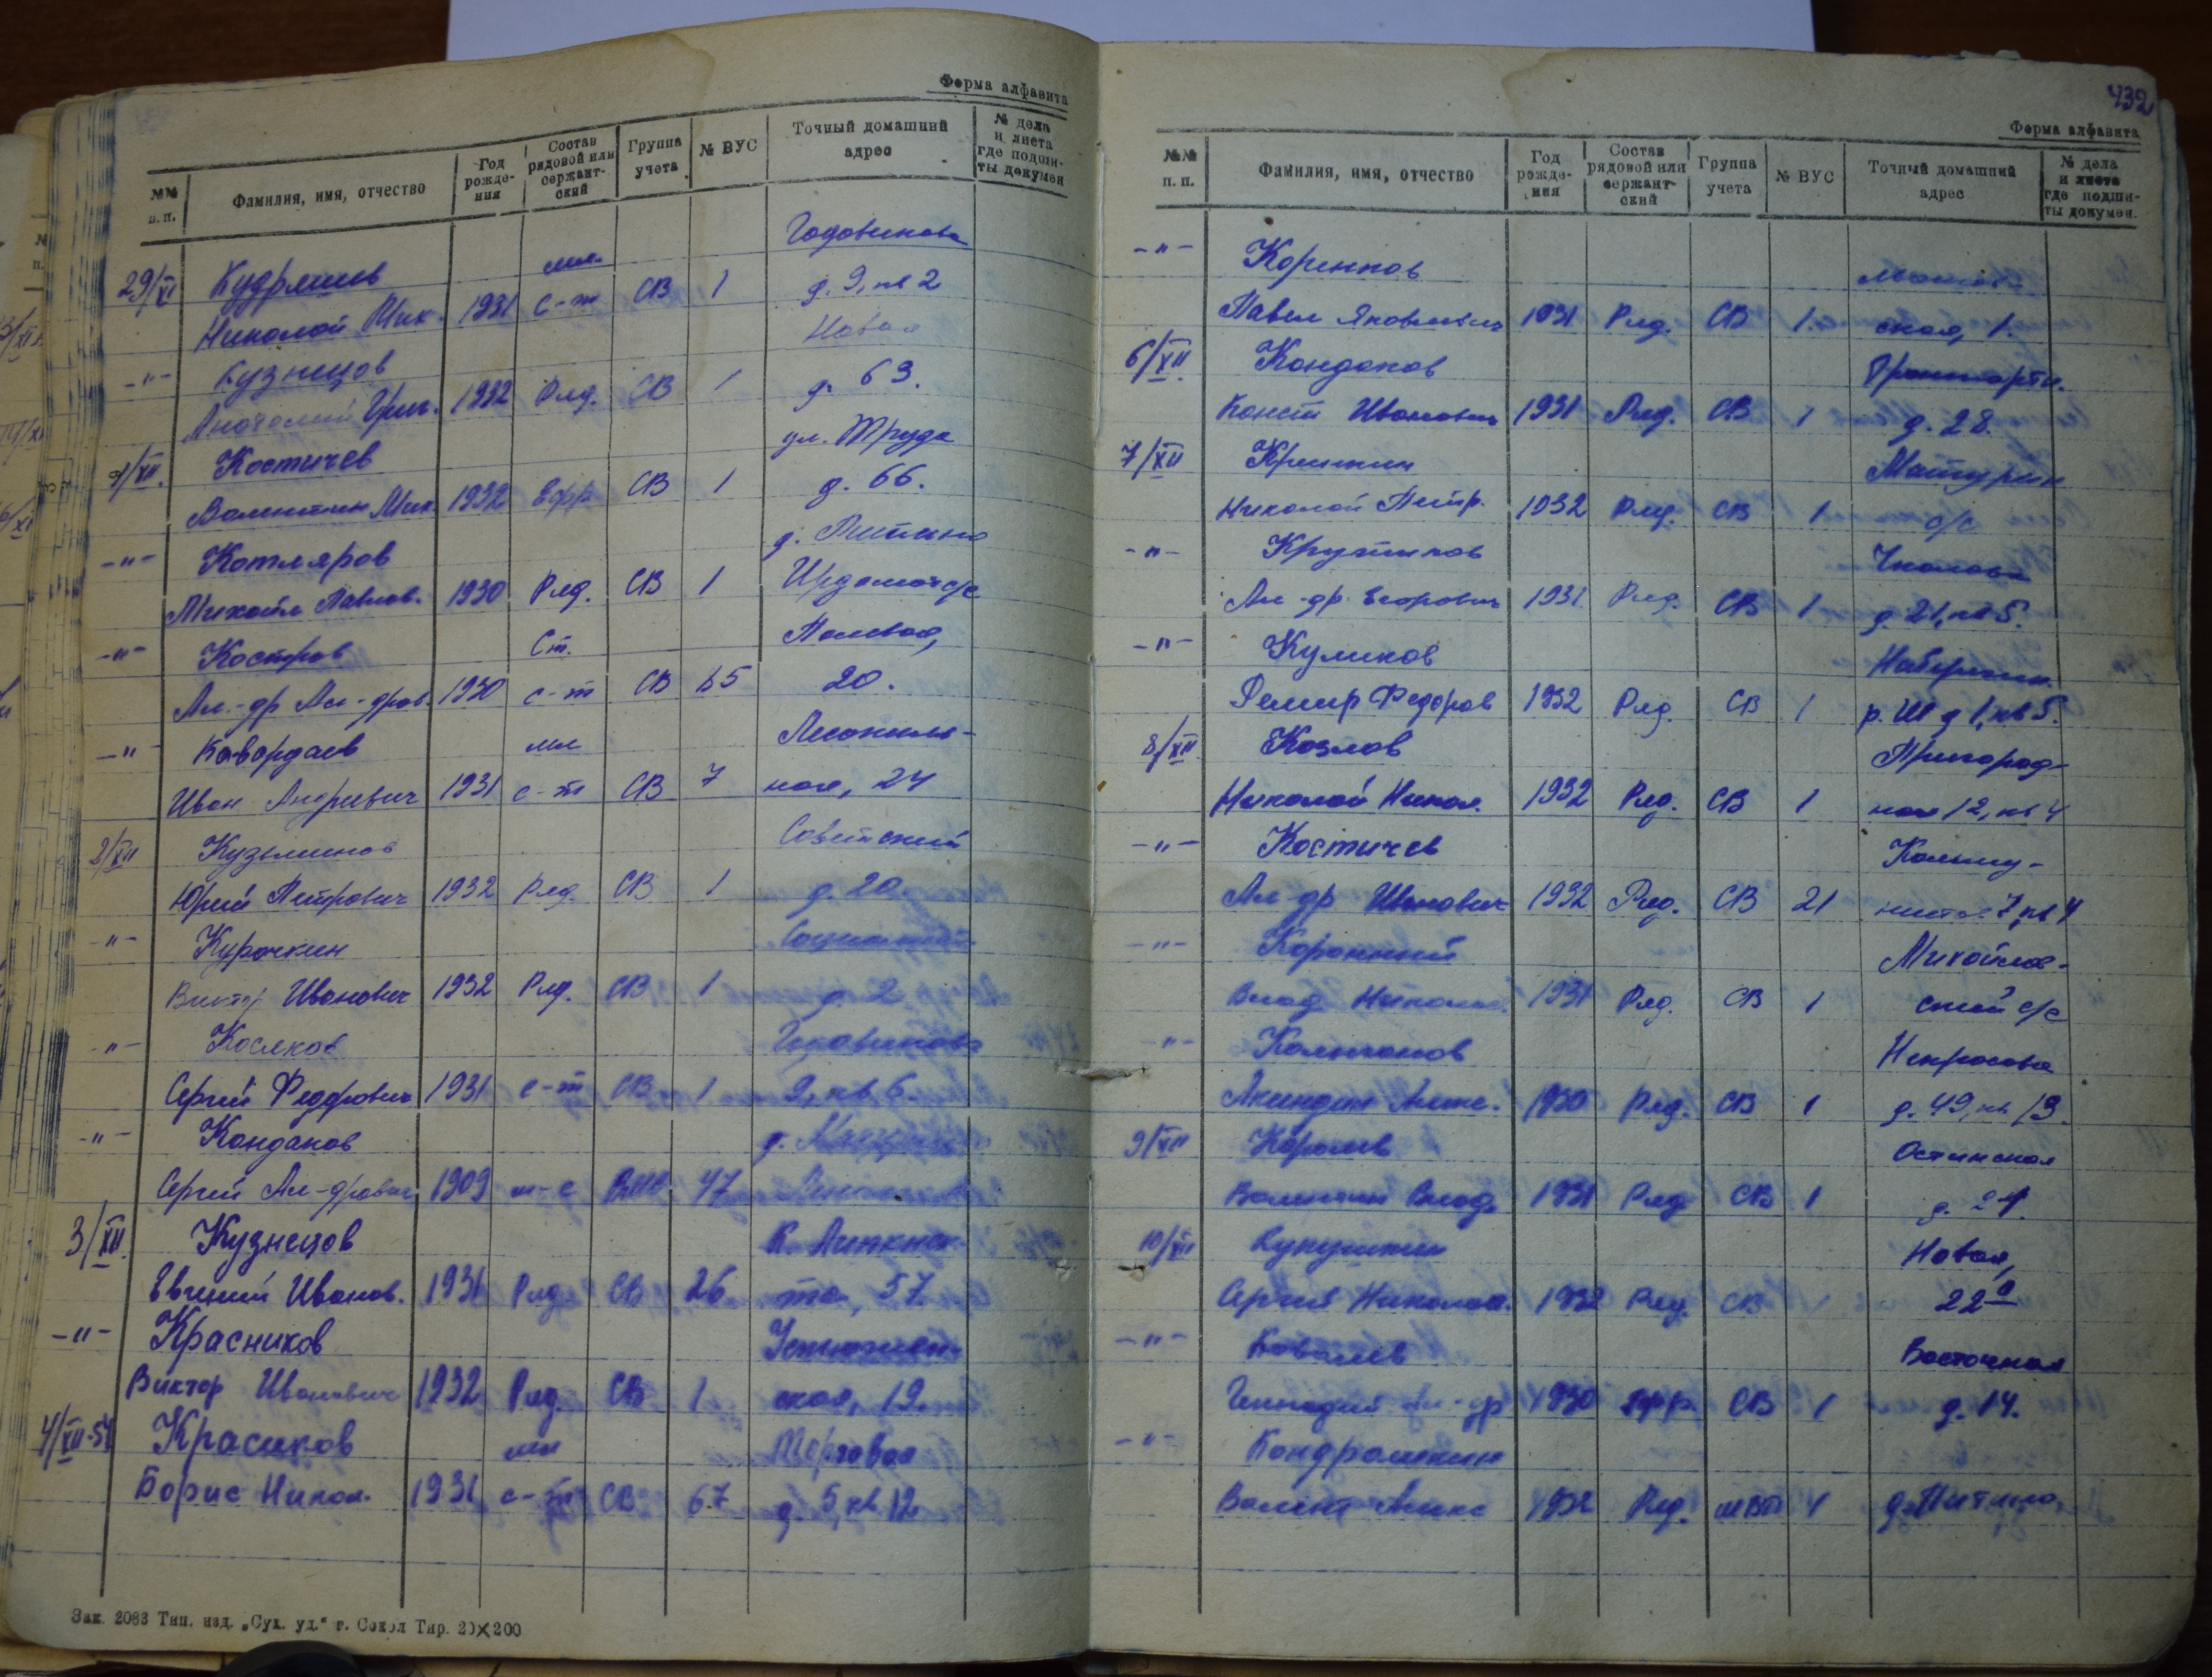 Форма алфавита
№№ п. п. Фамилия, имя, отчество Год рожде- ния Состав рядовой или сержант- ский Группа учета № ВУС Точный домашний адрес № дела и листа где подши- ты докумен
29/XI Кудряшев мл. Годовикова
Николай Мих. 1931 с-т СВ 1 д. 9, кв 2
-"- Кузнецов Новая
Анатолий Григ. 1932 Ряд. СВ 1 д. 63.
1/XII. Костичев ул. Труда
Валентин Мих. 1932 Ефр СВ 1 д. 66.
-"- Котляров д.
Михаил Павлов. 1930 Ряд. СВ 1 Ирдомат с/с
-"- Костров Ст. Полевая,
Ал-др Ал-дров. 1930 с-т СВ 65 20.
-"- Кавардаев мл
Иван Андреевич 1931 с-т СВ 7 ная, 24
2/XII Кузьминов Советский
Юрий Петрович 1932 Ряд. СВ 1 д. 20
-"- Курочкин
Виктор Иванович 1932 Ряд. СВ 1 д. 2
-"- Косяков Годовикова
Сергей Федорович 1931 с-т СВ 1 9, кв 6.
-"- Кондаков д.
Сергей Ал-дрович 1909 47
3/XII. Кузнецов К. Либкнех-
Евгений Иванов. 1931 Ряд. СВ 26 та, 57.
-"- Красников Устюжен-
Виктор Иванович 1932 Ряд. СВ 1 ская, 19.
4/XII-57 Красиков мл Торговая
Борис Никол. 1931 с-т СВ 67 д. 5, кв 12
Зак. 2083 Тип. изд. „Сух. уд.“ г. Сокол Тир. 20×200
432
Форма алфавита
№№ п. п. Фамилия, имя, отчество Год рожде- ния Состав рядовой или сержант- ский Группа учета № ВУС Точный домашний адрес № дела и листа где подши- ты докумен.
-"- Коренков
Павел Яковлевич 1931 Ряд. СВ 1. ская, 1.
6/XII. Кондаков
Конст Иванович 1931 Ряд. СВ 1 д. 28.
7/XII Матурин
Николай Петр. 1932 Ряд. СВ 1 с/с
-"- Крутиков Чкалова
Ал-др Егорович 1931. Ряд. СВ 1 д. 21, кв 5.
-"- Куликов Набережн.
Ремир Федоров 1932 Ряд. СВ 1 р. Ш д 1, кв 5.
8/XII Козлов Пригород-
Николай Никол. 1932 Ряд. СВ 1 ная 12, кв 4
-"- Костичев Комму-
Ал-др Иванович 1932 Ряд. СВ 21 нистов 7, кв 4
-"- Михайлов-
Влад. Никол. 1931 Ряд. СВ 1 ский с/с
-"- Колпаков Некрасова
1930 Ряд. СВ 1 д. 49, кв 13.
9/XII Королев Остинская
Валентин Влад. 1931 Ряд СВ 1 д. 24.
10/XII Кукушкин Новая,
Сергей Николаев. 1932 Ряд. СВ 1 22а
-"- Ковалев Восточная
Геннадий Ал-др 1930 Ефр. СВ 1 д. 14.
-"- Кондрашкин
Валент 1932 Ряд. 1 д. Питино